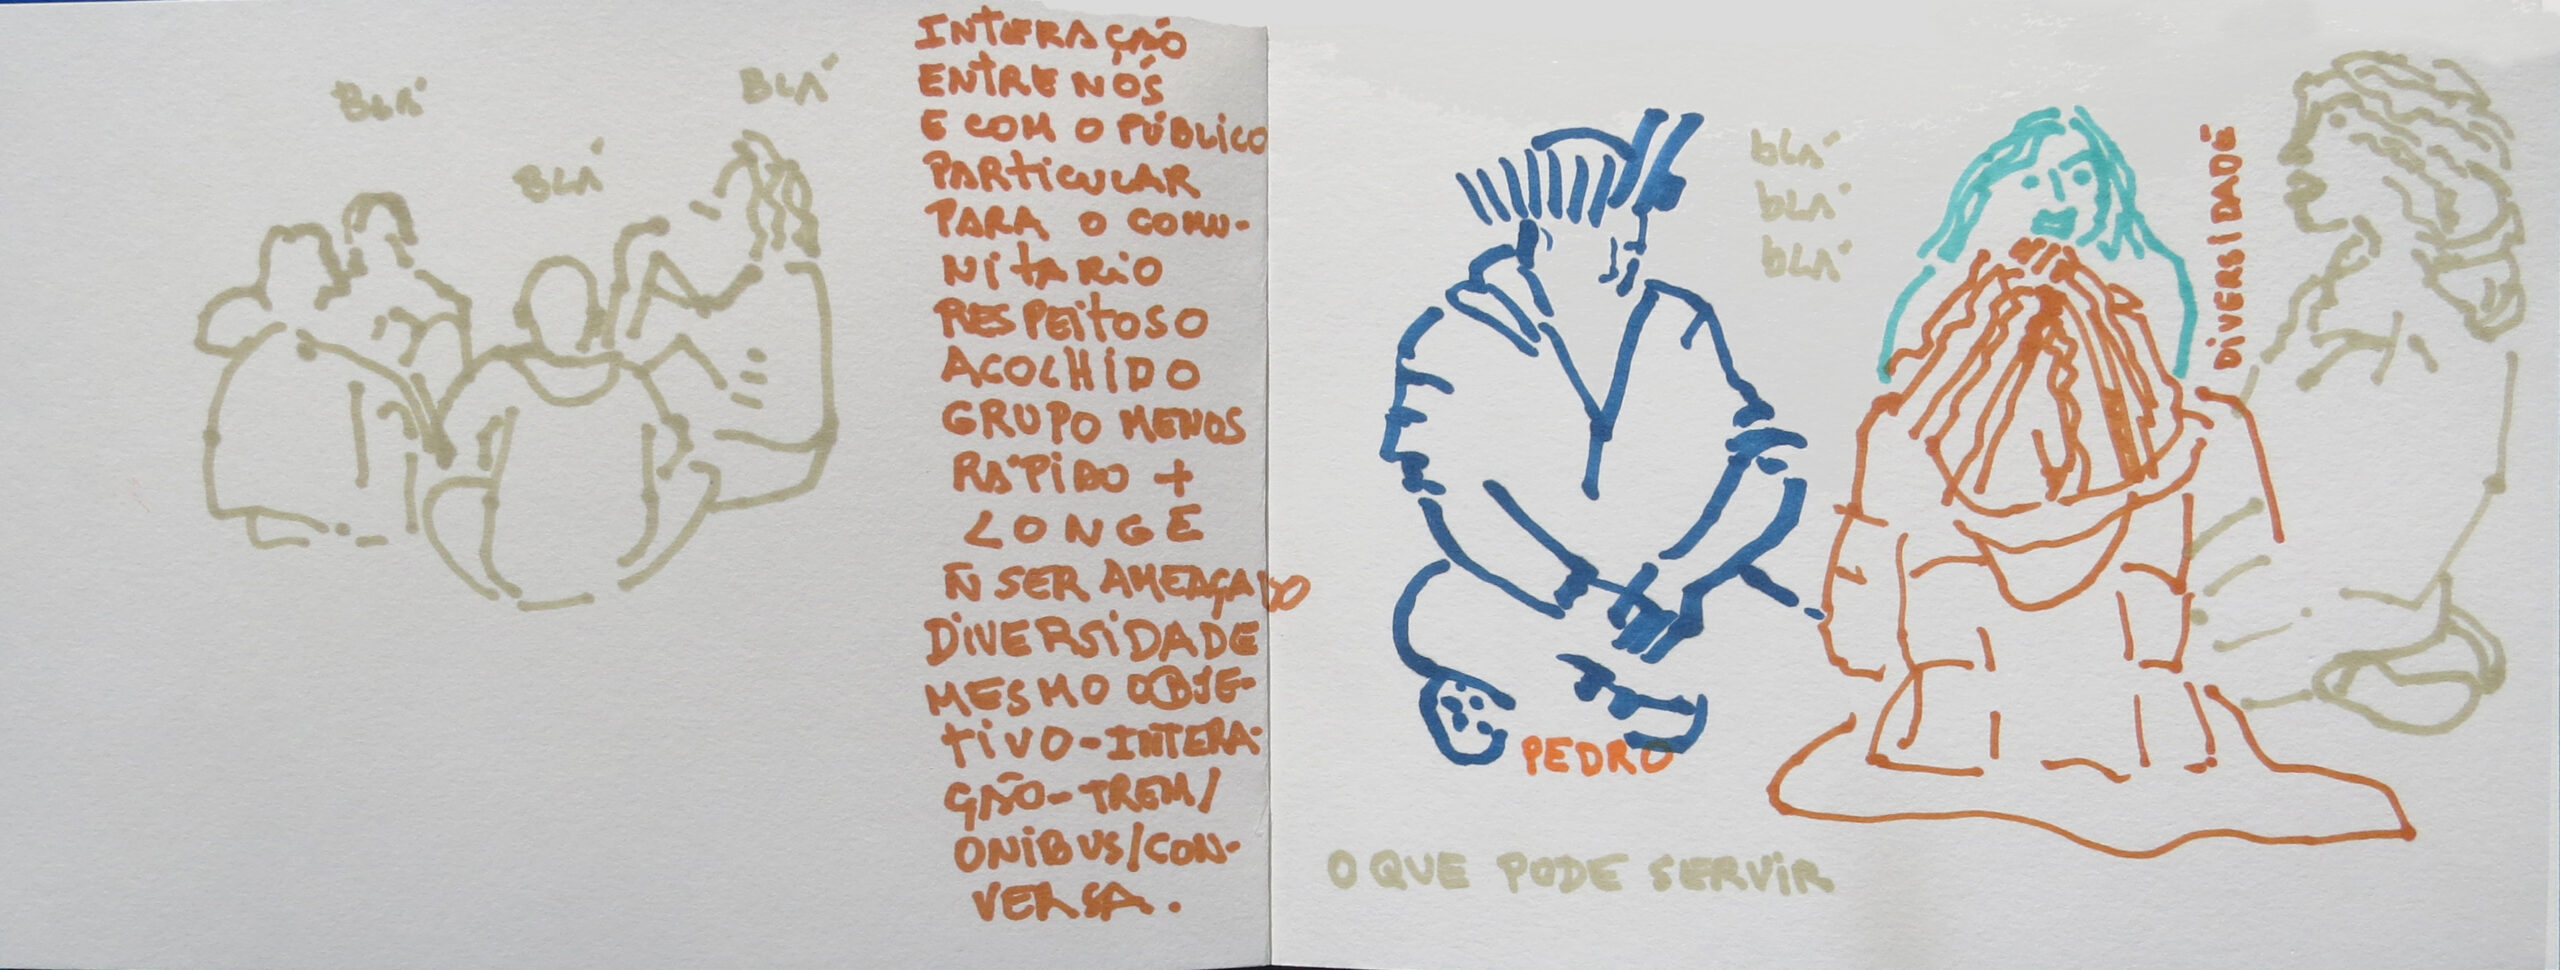 BLÁ
BLÁ
BLÁ
INTERAÇÃO
ENTRE NÓS
E COM O PÚBLICO
PARTICULAR
PARA O COMU-
NITARIO
RESPEITOSO
ACOLHIDO
GRUPO MENOS
RÁPIDO +
LONGE
Ñ SER AMEAÇADO
DIVERSIDADE
MESMO OBJE-
TIVO-INTERA-
ÇÃO-TREM/
ONIBUS/CON-
VERSA.
bLÁ
bLÁ
bLÁ
DIVERSIDADE
PEDRO
O QUE PODE SERVIR